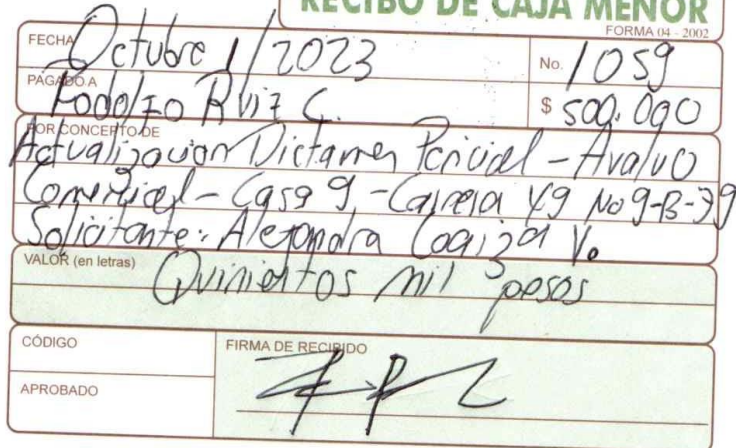 RECIBO DE CAJA MENOR
FORMA 04 - 2002
FECHA Octubre 1/2023
No. 1059
PAGADO A Rodolfo Ruiz C.
$ 500.000
POR CONCEPTO DE
Actualización Dictamen Pericial - Avaluo
Comercial - Casa 9 - Carrera 49 No 9-B-39
Solicitante: Alejandra Loaiza V.
VALOR (en letras) Quinientos mil pesos
CÓDIGO
FIRMA DE RECIBIDO
APROBADO